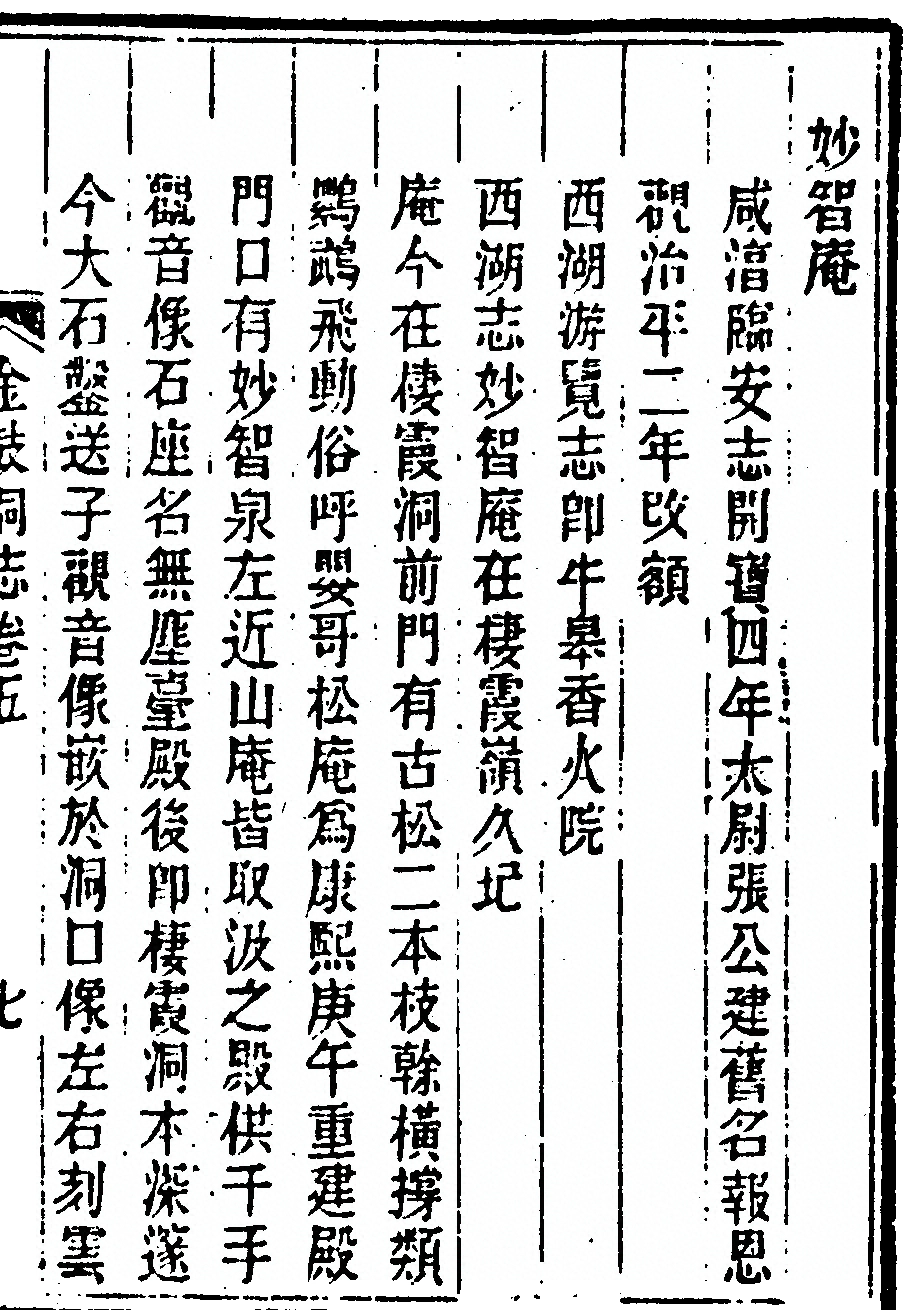 妙智庵
咸淳臨安志開運四年太尉張公建舊名報恩
觀治平二年改額
西湖游覽志即牛皋香火院
西湖志妙智庵在棲霞嶺久圮
庵今在棲霞洞前門有古松二本枝榦橫撐類
鸚鵡飛動俗呼嬰哥松庵爲康熙庚午重建殿
門口有妙智泉左近山庵皆取汲之殿供千手
觀音像石座名無塵臺殿後卽棲霞洞本深邃
今大石鑿送子觀音像嵌於洞口像左右刻雲
金鼓洞志卷五 七